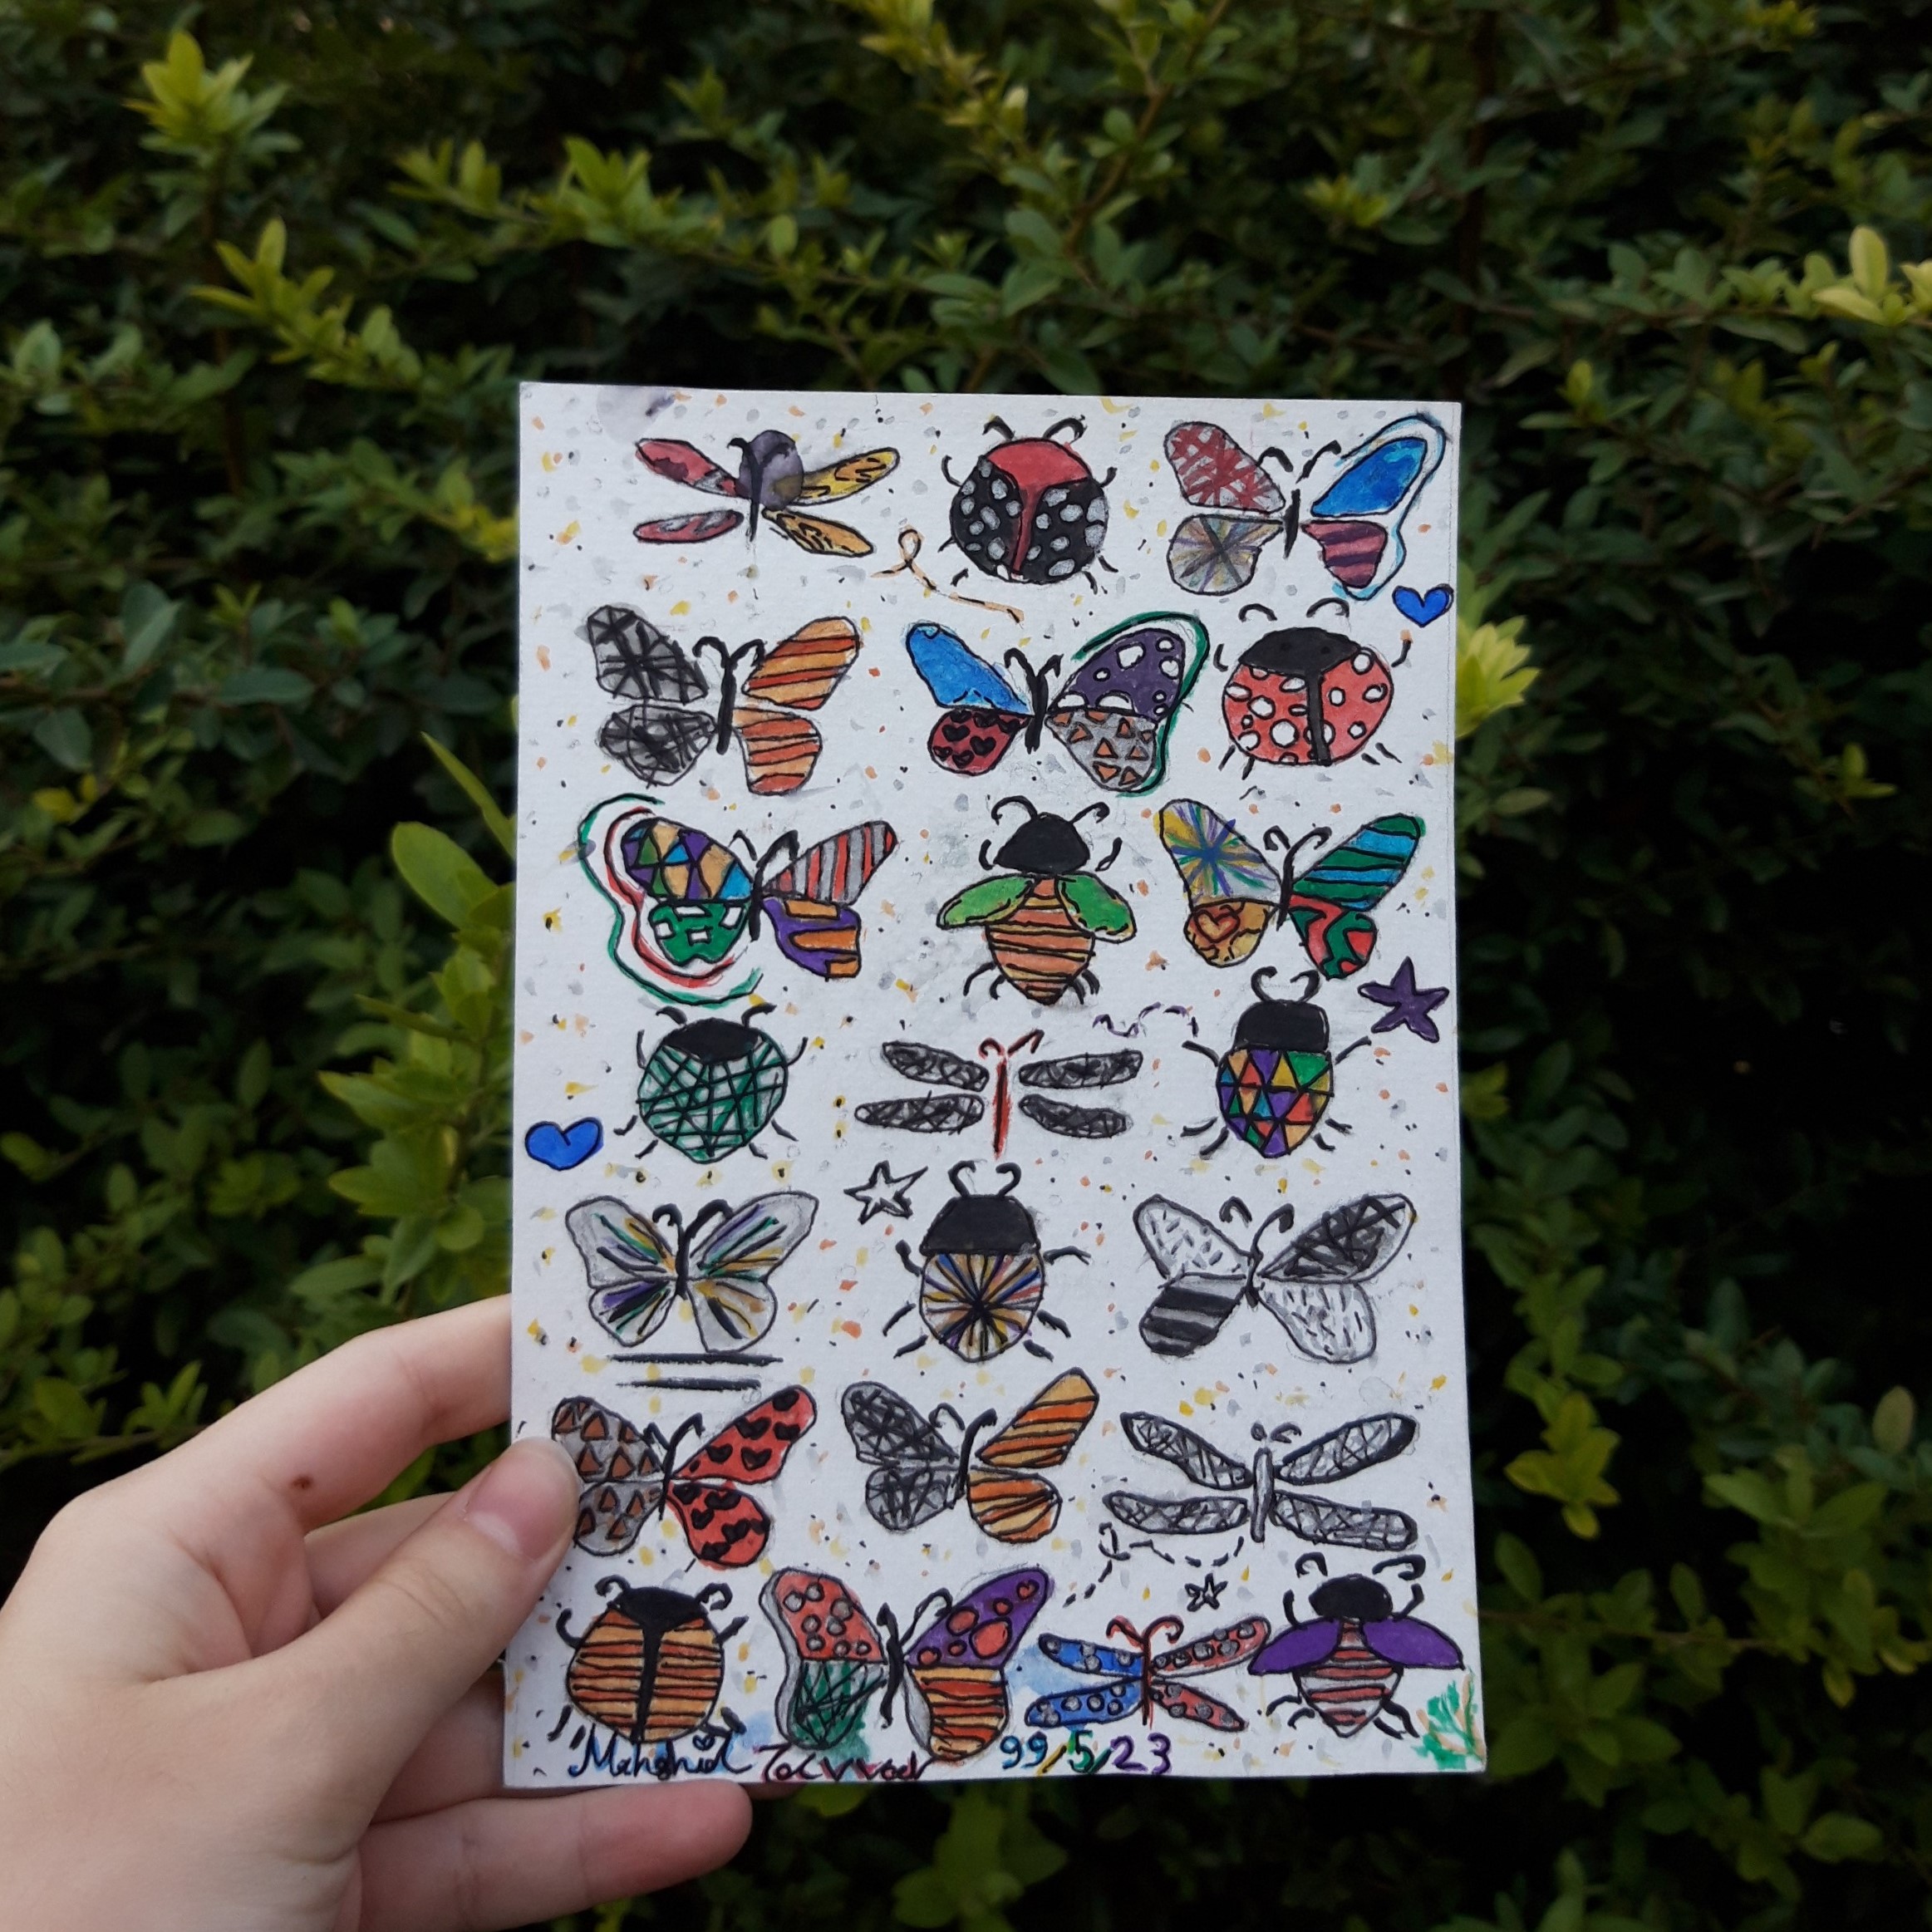 Mahshid Tavvad 99/5/23